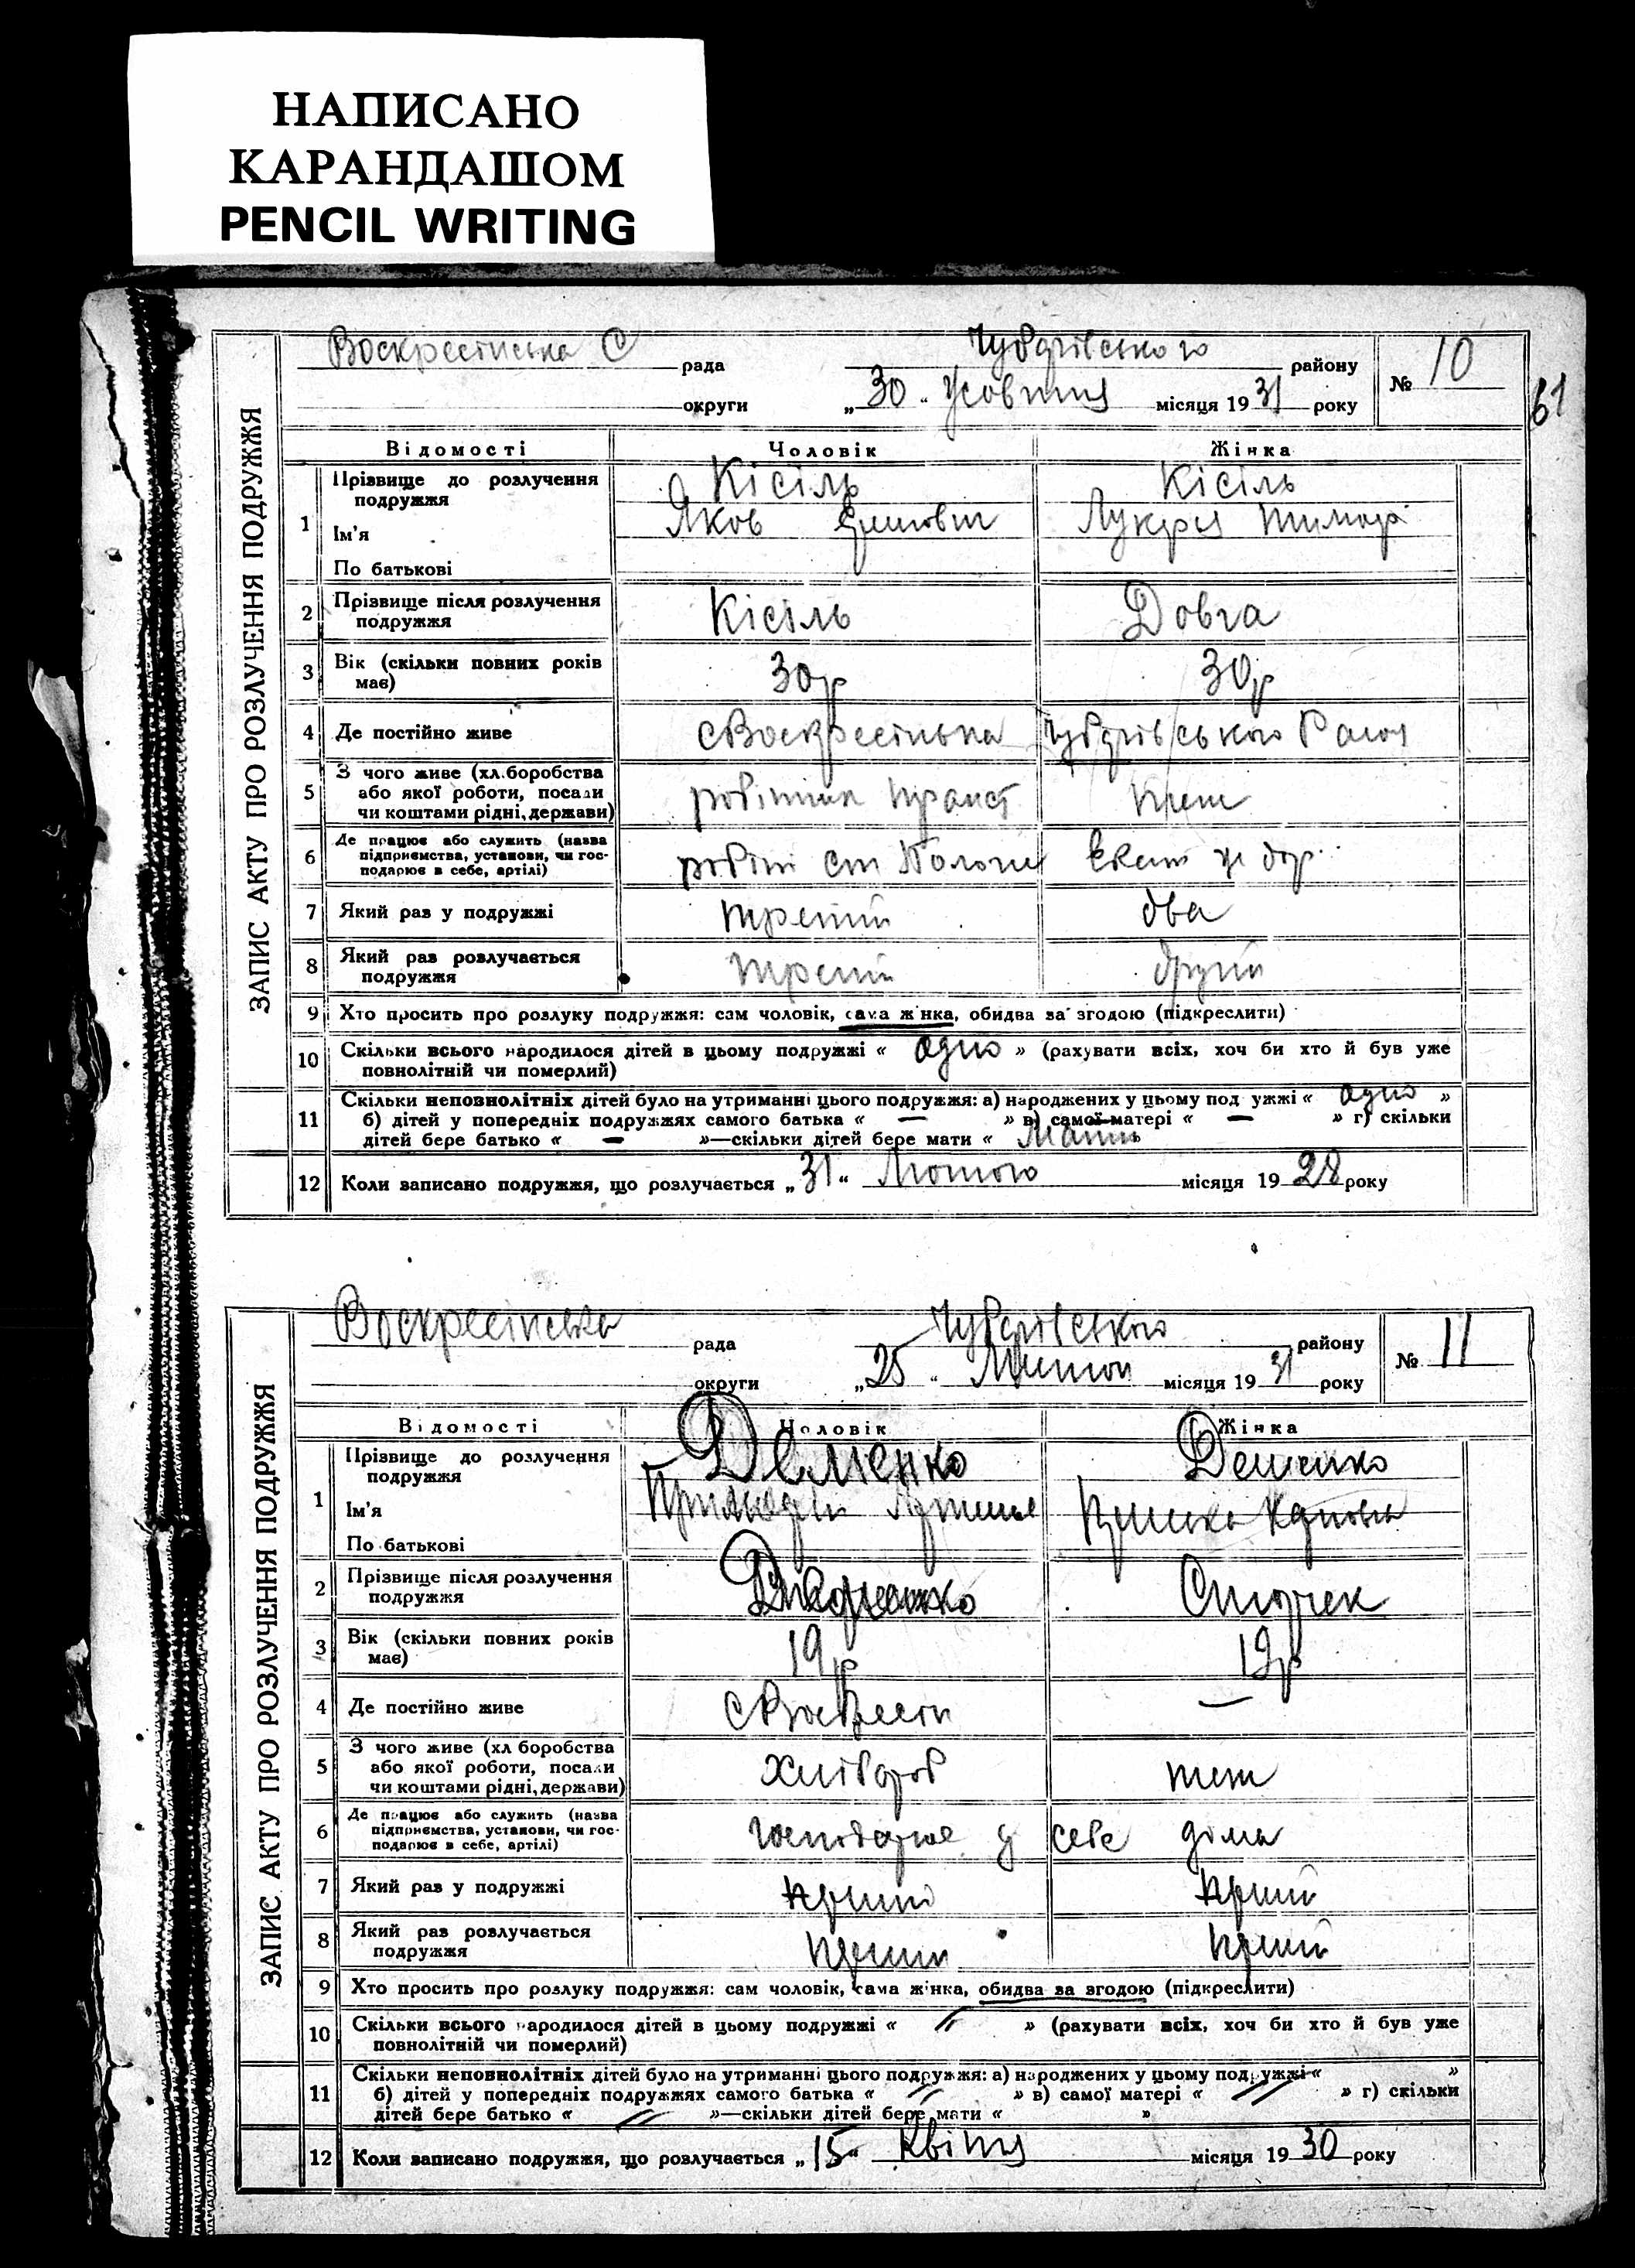 НАПИСАНО
КАРАНДАШОМ
PENCIL WRITING
61
ЗАПИС АКТУ ПРО РОЗЛУЧЕННЯ ПОДРУЖЖЯ
Воскресінська С рада Чубарівського району № 10
округи „30“ Жовтня місяця 1931 року
Відомості Чоловік Жінка
1 Прізвище до розлучення Кісіль Кісіль
подружжя
Ім'я Яков Тимоф
По батькові
2 Прізвище після розлучення Кісіль Довга
подружжя
3 Вік (скільки повних років 30р 30р
має)
4 Де постійно живе с Воскресінька Чубарівського
5 З чого живе (хл.боробства
або якої роботи, посади
чи коштами рідні, держави)
6 Де працює або служить (назва
підприємства, установи, чи гос-
подарює в себе, артілі) ст Пологи
7 Який раз у подружжі третій два
8 Який раз розлучається третій другий
подружжя
9 Хто просить про розлуку подружжя: сам чоловік, сама жінка, обидва за згодою (підкреслити)
10 Скільки всього народилося дітей в цьому подружжі « одно » (рахувати всіх, хоч би хто й був уже
повнолітній чи померлий)
11 Скільки неповнолітніх дітей було на утриманні цього подружжя: а) народжених у цьому подружжі « одно »
б) дітей у попередніх подружжях самого батька « — » в) самої матері « — » г) скільки
дітей бере батько « — »—скільки дітей бере мати « Мать
12 Коли записано подружжя, що розлучається „31“ Лютого місяця 1928 року
ЗАПИС АКТУ ПРО РОЗЛУЧЕННЯ ПОДРУЖЖЯ
Воскресінська рада Чубарівського району № 11
округи „25“ Листоп місяця 1931 року
Відомості Чоловік Жінка
1 Прізвище до розлучення Деменко Деменко
подружжя
Ім'я
По батькові
2 Прізвище після розлучення
подружжя
3 Вік (скільки повних років 19р 19р
має)
4 Де постійно живе с Воскресін —
5 З чого живе (хл боробства Хлібороб теж
або якої роботи, посади
чи коштами рідні, держави)
6 Де працює або служить (назва
підприємства, установи, чи гос-
подарює в себе, артілі) господарює у себе дома
7 Який раз у подружжі
8 Який раз розлучається
подружжя
9 Хто просить про розлуку подружжя: сам чоловік, сама жінка, обидва за згодою (підкреслити)
10 Скільки всього народилося дітей в цьому подружжі « » (рахувати всіх, хоч би хто й був уже
повнолітній чи померлий)
11 Скільки неповнолітніх дітей було на утриманні цього подружжя: а) народжених у цьому подружжі « »
б) дітей у попередніх подружжях самого батька « » в) самої матері « » г) скільки
дітей бере батько « »—скільки дітей бере мати « »
12 Коли записано подружжя, що розлучається „15“ Квітня місяця 1930 року